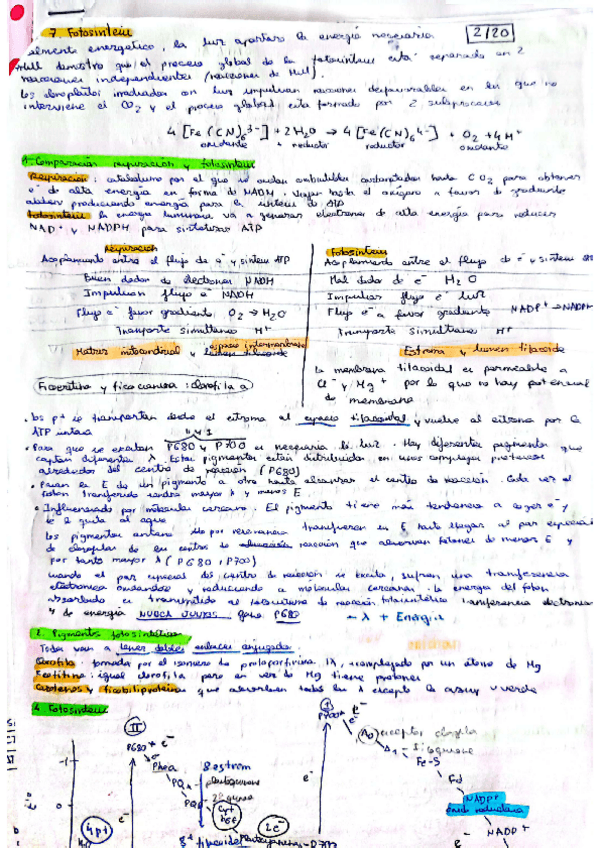 7. Fotosíntesis
2/20
aliment energético, la luz aportara la energía necesaria
Hill demostro que el proceso global de la fotosíntesis está separado en 2
reacciones independientes (reacciones de Hill).
Los cloroplastos irradiados con luz impulsan reacciones desfavorables en las que no
interviene el CO2 y el proceso global esta formado por 2 subprocesos
4 [Fe(CN)6 3-] + 2H2O → 4 [Fe(CN)6 4-] + O2 + 4H+
oxidante + reductor reductor oxidante
1. Comparación respiración y fotosíntesis
Respiración: catabolismo por el que se oxidan combustibles hasta CO2 para obtener
e- de alta energía en forma de NADH, viajar hasta el oxígeno a favor de gradiente
produciendo energía para la síntesis de ATP
Fotosíntesis la energía luminosa va a generar electrones de alta energía para reducir
NAD+ y NADPH para sintetizar ATP
Respiración
Acoplamiento entre el flujo de e- y síntesis ATP
Buen dador de electrones NADH
Impulsan flujo e- NADH
Flujo e- favor gradiente O2 → H2O
Transporte simultaneo H+
Matriz mitocondrial y espacio intermembrana
Fotosíntesis
Acoplamiento entre el flujo de e- y síntesis ATP
Mal dador de e- H2O
Impulsar flujo e- luz
Flujo e- a favor gradiente NADP+ → NADPH
Transporte simultáneo H+
Estroma y lumen tilacoide
La membrana tilacoidal es permeable a
Cl- y Mg+ por lo que no hay potencial
de membrana
Feofitina y ficocianina : clorofila a
• Los p+ se transportan desde el estroma al espacio tilacoidal y vuelve al estroma por la
ATP sintasa
• Para que se exciten P680 y P700 es necesaria la luz. Hay diferentes pigmentos que
captan diferentes λ. Estos pigmentos están distribuidos en unos complejos proteicos
alrededor del centro de reacción (P680)
• Pasan la E de un pigmento a otro hasta alcanzar el centro de reacción. Cada vez el
foton transferido tendra mayor λ y menos E
• Influenciado por moleculas cercanas. El pigmento tiene más tendencia a coger e- y
se lo quita al agua
Los pigmentos antena sólo por resonancia transfieren su E hasta llegar al par especial
de clorofilas de un centro de reacción que absorven fotones de menor E y
por tanto mayor λ (P680, P700)
cuando el par especial del centro de reacción se excita, sufren una transferencia
electrónica oxidandose y reduciendo a moleculas cercanas. la energía del foton
absorbido es transmitida al
y de energía NUNCA JUNTAS. gana P680
- λ + Energía
2. Pigmentos fotosintéticos
Todos van a tener dobles enlaces conjugados
Clorofila: formada por el isomero de protoporfirina IX, acomplejado por un átomo de Mg
Feofitina: igual clorofila pero en vez de Mg tiene protones
Carotenos y ficobiliproteinas que absorben todas las λ excepto la azul y verde
4. Fotosíntesis
II
P680* e-
Pheo
PQA
PQB
-1
0
8 estrom
plastoquinona
2ª quinona
Cyt
b6f
2e-
4p+
e-
I
P700* e-
A0 aceptor clorofila
A1 - filoquinona
Fe-S
Fd
NADP+
NADP+